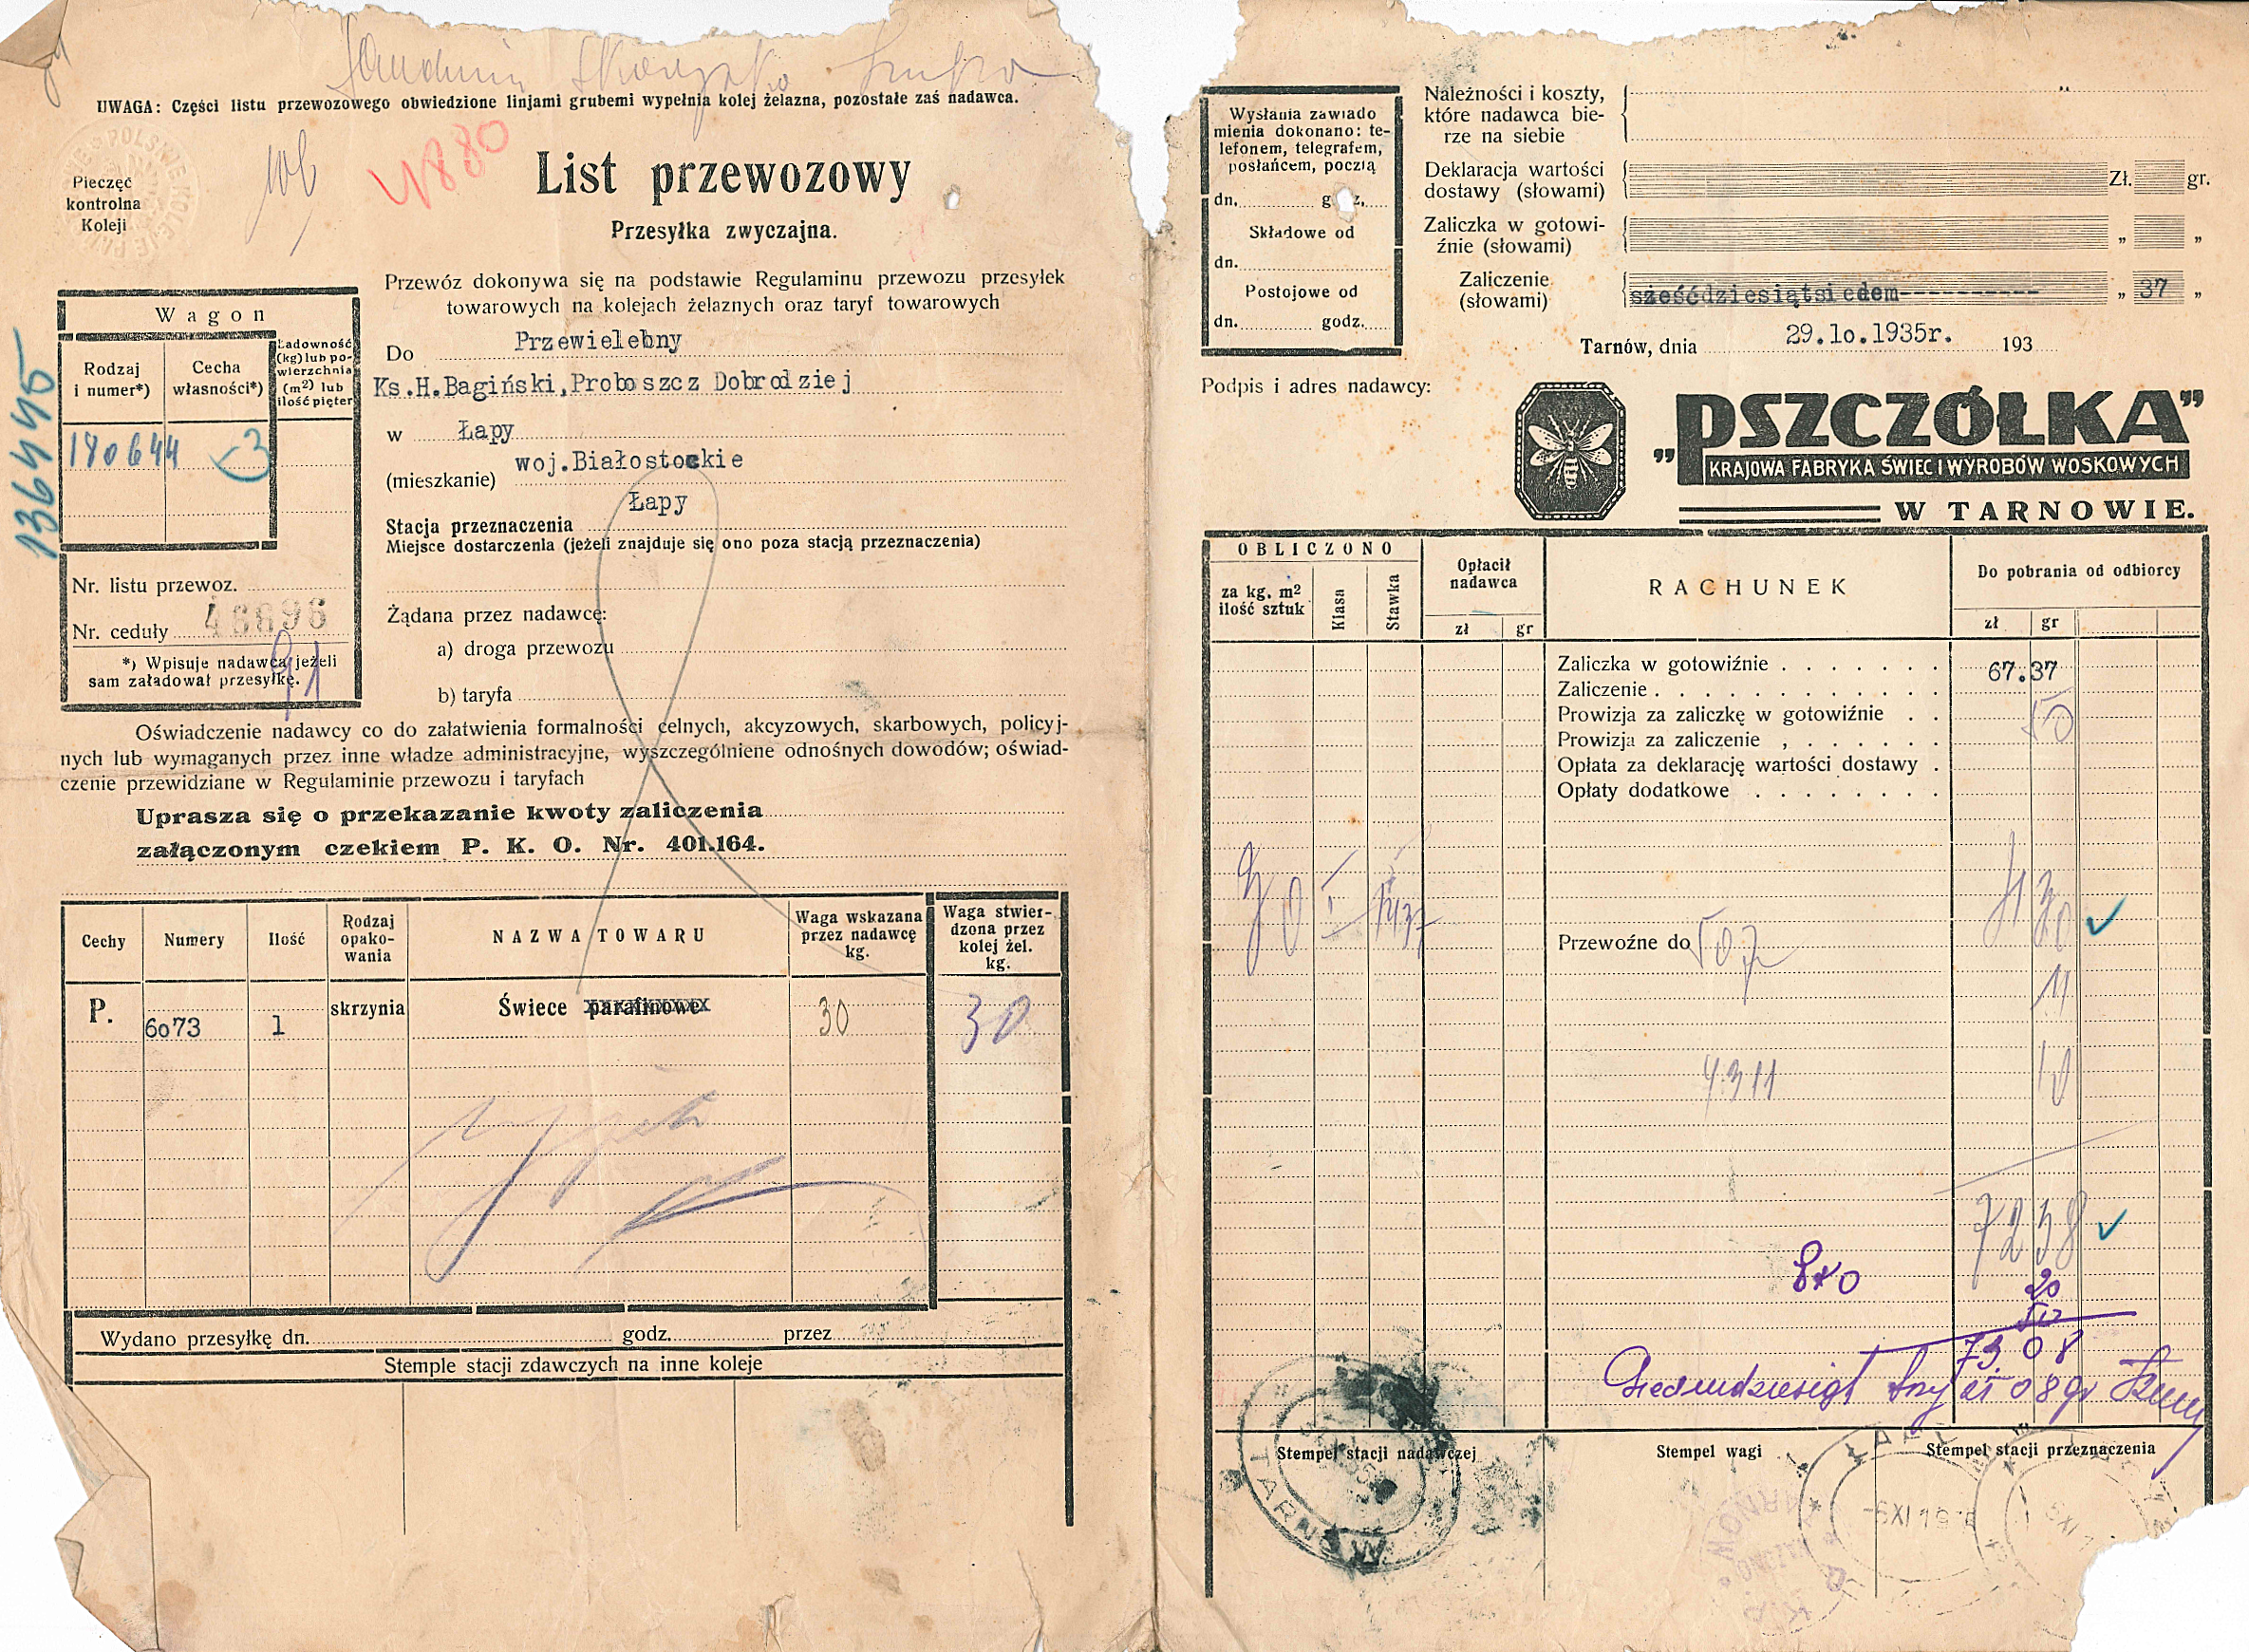 UWAGA: Części listu przewozowego obwiedzione linjami grubemi wypełnia kolej żelazna, pozostałe zaś nadawca.
POLSKIE KOLEJE PAŃ
Pieczęć
kontrolna
Koleji
4880
List przewozowy
Przesyłka zwyczajna.
Przewóz dokonywa się na podstawie Regulaminu przewozu przesyłek
towarowych na kolejach żelaznych oraz taryf towarowych
Do Przewielebny
Ks.H.Bagiński,Proboszcz Dobrodziej
w Łapy
woj.Białostockie
(mieszkanie)
Łapy
Stacja przeznaczenia
Miejsce dostarczenia (jeżeli znajduje się ono poza stacją przeznaczenia)
Żądana przez nadawcę:
a) droga przewozu
b) taryfa
136445
Wagon
Rodzaj
i numer*)
Cecha
własności*)
Ładowność
(kg) lub po-
wierzchnia
(m2) lub
ilość pięter
180644
Nr. listu przewoz.
Nr. ceduły 46696
91
*) Wpisuje nadawca jeżeli
sam załadował przesyłkę.
Oświadczenie nadawcy co do załatwienia formalności celnych, akcyzowych, skarbowych, policyj-
nych lub wymaganych przez inne władze administracyjne, wyszczególniene odnośnych dowodów; oświad-
czenie przewidziane w Regulaminie przewozu i taryfach
Uprasza się o przekazanie kwoty zaliczenia
załączonym czekiem P. K. O. Nr. 401.164.
Cechy
Numery
Ilość
Rodzaj
opako-
wania
NAZWA TOWARU
Waga wskazana
przez nadawcę
kg.
Waga stwier-
dzona przez
kolej żel.
kg.
P. 6073 1 skrzynia Świece parafinowe 30 30
Wydano przesyłkę dn. godz. przez
Stemple stacji zdawczych na inne koleje
Wysłania zawiado
mienia dokonano: te-
lefonem, telegrafem,
posłańcem, pocztą
dn. g z.
Składowe od
dn.
Postojowe od
dn. godz.
Należności i koszty,
które nadawca bie-
rze na siebie
Deklaracja wartości
dostawy (słowami) Zł. gr.
Zaliczka w gotowi-
źnie (słowami) „ „
Zaliczenie
(słowami) sześćdziesiątsiedem---------- „ 37 „
Tarnów, dnia 29.10.1935r. 193
Podpis i adres nadawcy:
„PSZCZÓŁKA”
KRAJOWA FABRYKA ŚWIEC I WYROBÓW WOSKOWYCH
W TARNOWIE.
OBLICZONO
za kg. m2
ilość sztuk
Klasa
Stawka
Opłacił
nadawca
zł gr
RACHUNEK
Do pobrania od odbiorcy
zł gr
Zaliczka w gotowiźnie 67.37
Zaliczenie
Prowizja za zaliczkę w gotowiźnie 50
Prowizja za zaliczenie
Opłata za deklarację wartości dostawy
Opłaty dodatkowe
30 I
Przewoźne do 507
11
4311 10
7238
20
50
73.08
Siedmdziesiąt trzy zł 08 gr
Stempel stacji nadawczej
Stempel wagi
Stempel stacji przeznaczenia
TARNÓW
-6XI 19
6XI